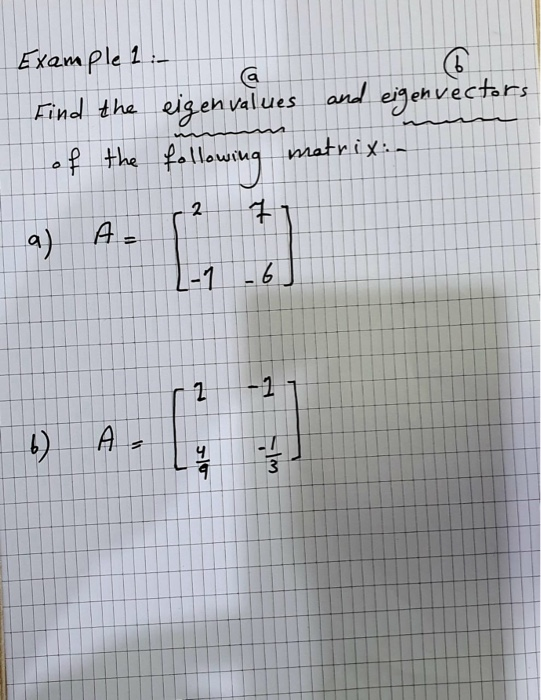 Example 1 :-
(a) (b)
Find the eigenvalues and eigenvectors
of the following matrix:-
a) A = [2 7
-1 -6]
b) A = [1 -1
4/9 -1/3]